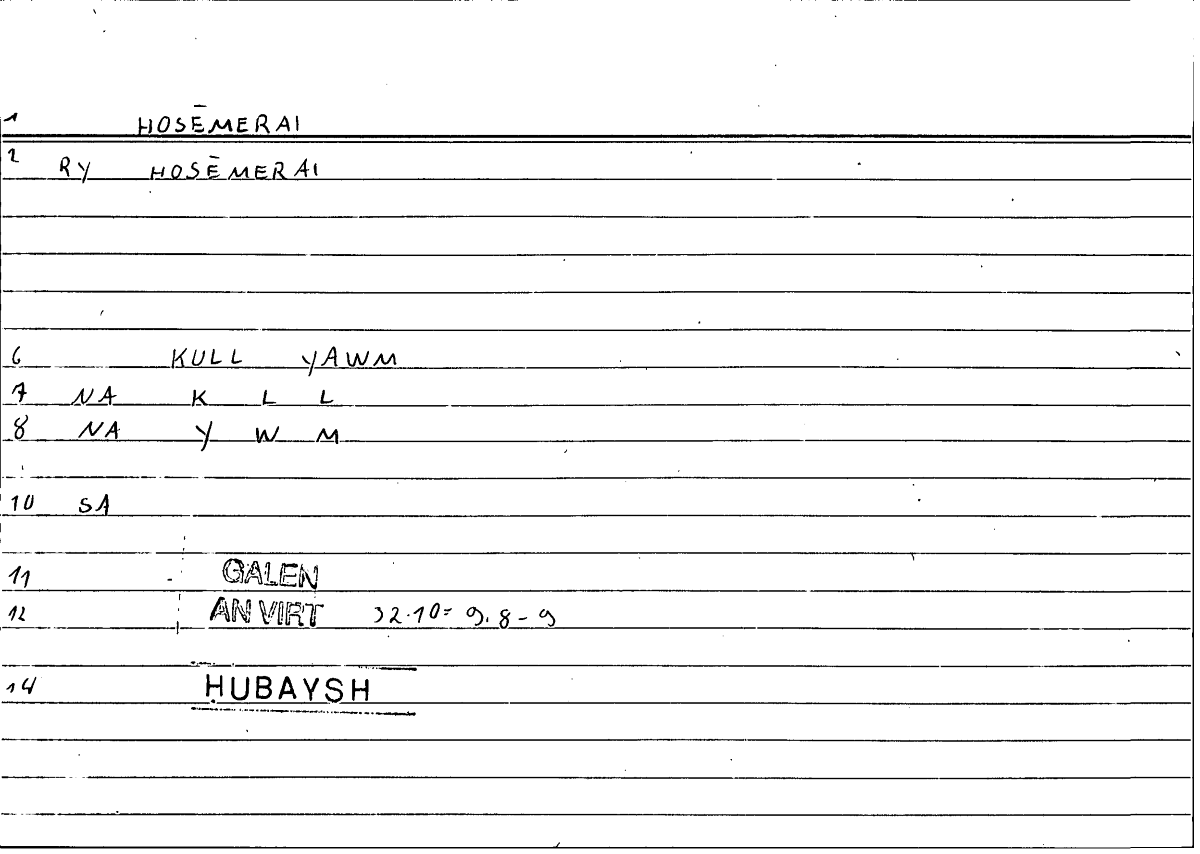 1 HOSĒMERAI
2 RY HOSĒMERAI
6 KULL YAWM
7 NA K L L
8 NA Y W M
10 SA
11 GALEN
12 AN VIRT 32.10= 9.8-9
14 ḤUBAYSH